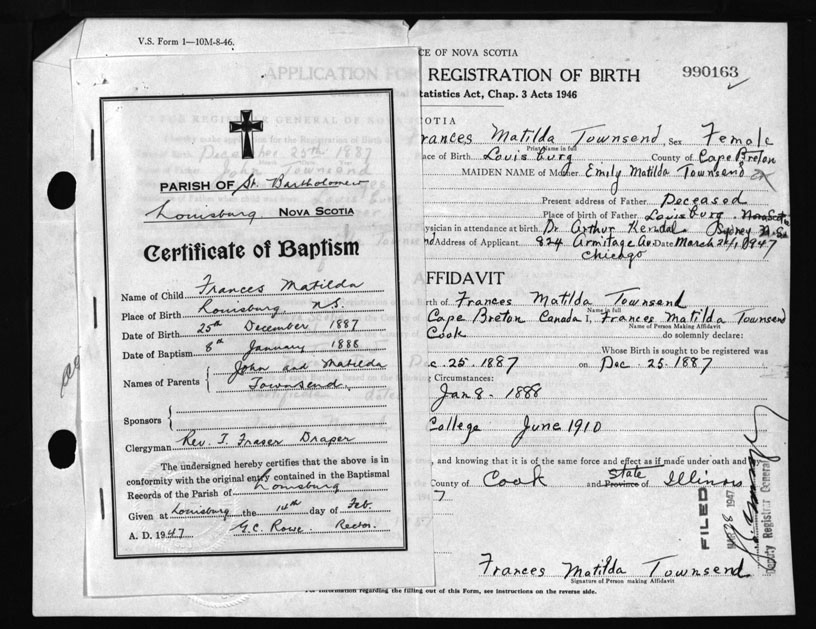 V.S. Form 1—10M-8-46.
PARISH OF St. Bartholomew
Louisburg NOVA SCOTIA
Certificate of Baptism
Name of Child Frances Matilda
Place of Birth Louisburg, N.S.
Date of Birth 25th December 1887
Date of Baptism 8th January 1888
Names of Parents { John and Matilda
Townsend
Sponsors {
Clergyman Rev. T. Fraser Draper
The undersigned hereby certifies that the above is in
conformity with the original entry contained in the Baptismal
Records of the Parish of Louisburg
Given at Louisburg the 14th day of Feb.
A. D. 1947 G.C. Rowe Rector.
CE OF NOVA SCOTIA
APPLICATION FOR REGISTRATION OF BIRTH 990163
tatistics Act, Chap. 3 Acts 1946
SCOTIA
Frances Matilda Townsend, Sex Female
Print Name in full
ace of Birth Louisburg County of Cape Breton
MAIDEN NAME of Mother Emily Matilda Townsend
Present address of Father Deceased
Place of birth of Father Louisburg. Nova Scotia
ysician in attendance at birth Dr Arthur Kendal Sydney N.S.
Address of Applicant 824 Armitage Av. Date March 1947
Chicago
AFFIDAVIT
rth of Frances Matilda Townsend
Name in full
Cape Breton Canada I, Frances Matilda Townsend
Name of Person Making Affidavit
Cook do solemnly declare:
Whose Birth is sought to be registered was
ec. 25. 1887 on Dec. 25. 1887
Circumstances:
Jan 8. 1888
College June 1910
, and knowing that it is of the same force and effect as if made under oath and by
County of Cook and Province of State Illinois
7
FILED
28 1947
Deputy Registrar General
Frances Matilda Townsend
Signature of Person making Affidavit
For information regarding the filling out of this Form, see instructions on the reverse side.